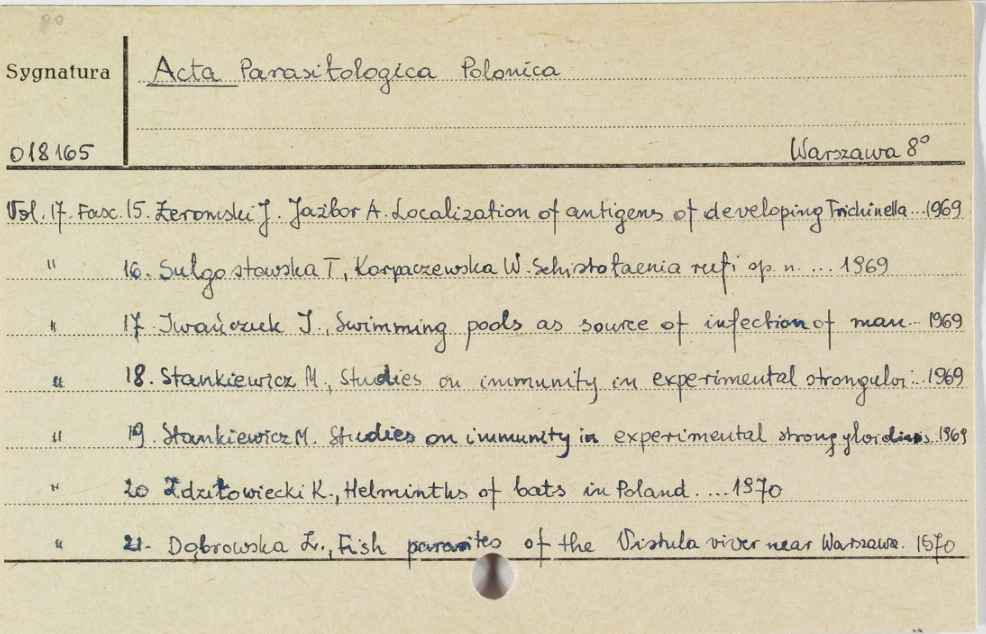 80
Sygnatura
Acta Parasitologica Polonica
018165
Warszawa 8°
Vol. 17. Fasc. 15. Żeromski J. Jaźbor A. Localization of antigens of developing Trichinella...1969
" 16. Sulgostowska T, Korpaczewska W. Schistotaenia rufi sp. n. ... 1969
" 17. Iwańczuk I., Swimming pools as source of infection of man.. 1969
" 18. Stankiewicz M., Studies on immunity in experimental strongyloi...1969
" 19. Stankiewicz M. Studies on immunity in experimental strongyloidiosis 1969
" 20 Zdzitowiecki K., Helminths of bats in Poland. ... 1970
" 21. Dąbrowska Z., Fish parasites of the Vistula river near Warszawa. 1970